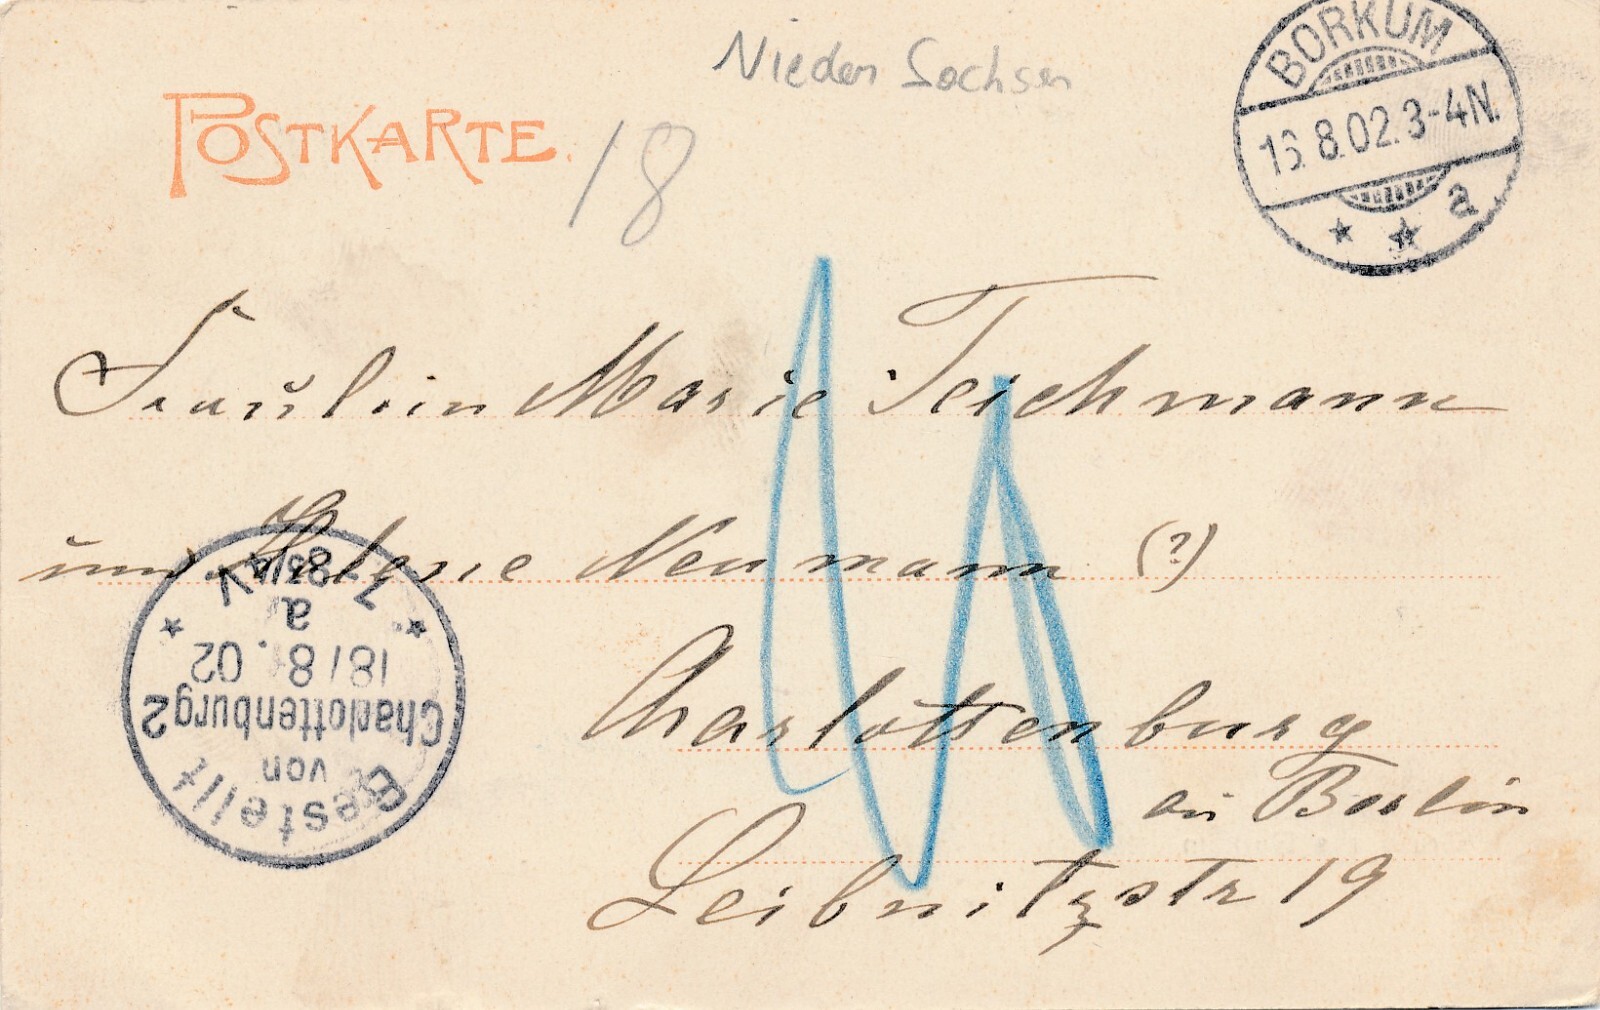 Nieder Sachsen
POSTKARTE.
18
BORKUM
8.02.3-4N.
a
Fräulein Marie Teichmann
und Helene Neumann (?)
Charlottenburg
bei Berlin
Leibnitzstr 19
Bestellt
von
Charlottenburg 2
18/8.02
a
V